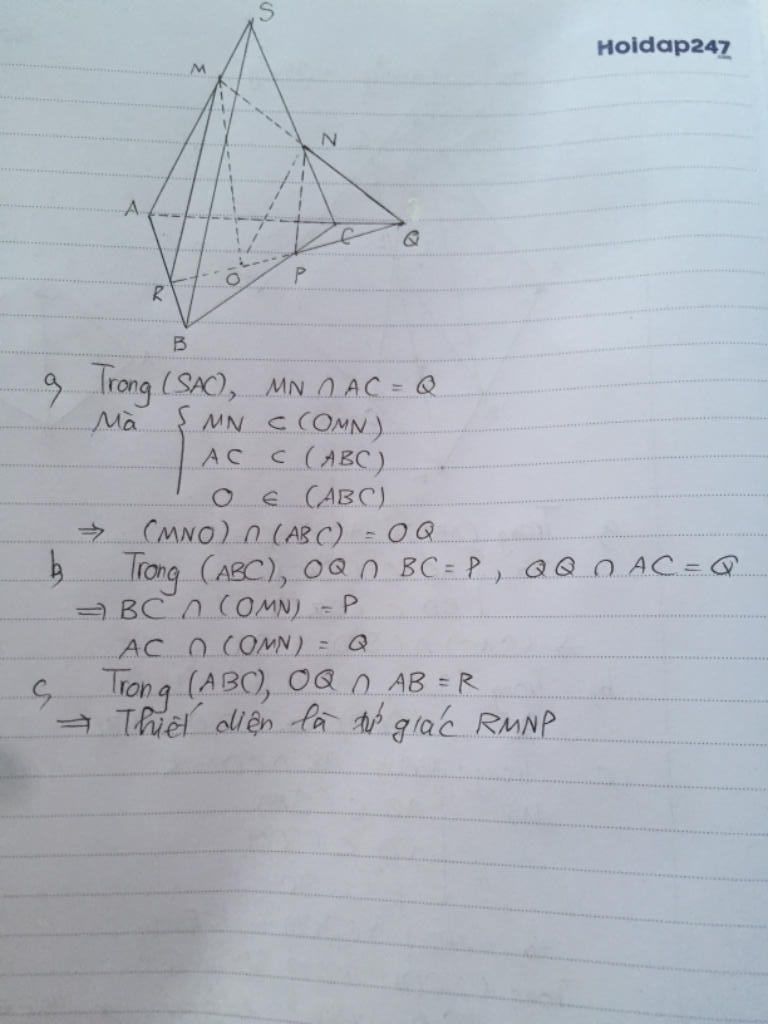 Hoidap247
S
M
N
A
C
Q
O
P
R
B
a, Trong (SAC), MN ∩ AC = Q
Mà { MN ⊂ (OMN)
AC ⊂ (ABC)
O ∈ (ABC)
⇒ (MNO) ∩ (ABC) = OQ
b, Trong (ABC), OQ ∩ BC = P, QQ ∩ AC = Q
⇒ BC ∩ (OMN) = P
AC ∩ (OMN) = Q
c, Trong (ABC), OQ ∩ AB = R
⇒ Thiết diện là tứ giác RMNP